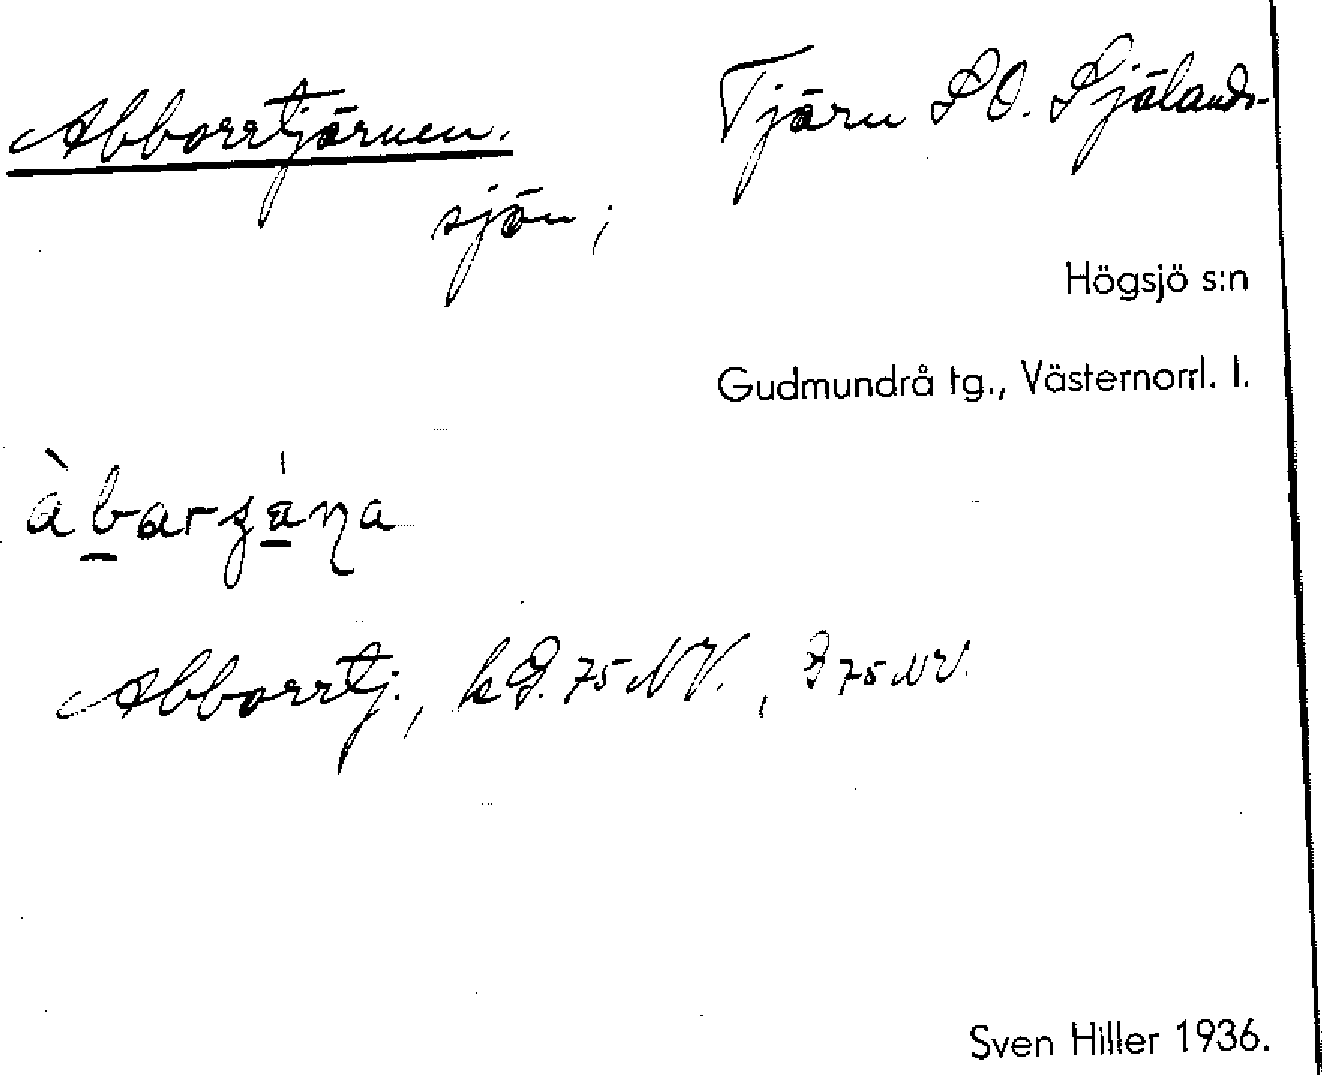 Abborrtjärnen. Tjärn SO. Själands-
sjön;
Högsjö s:n
Gudmundrå tg., Västernorrl. l.
Abborrtj., 75 NV., 75 NV.
Sven Hiller 1936.